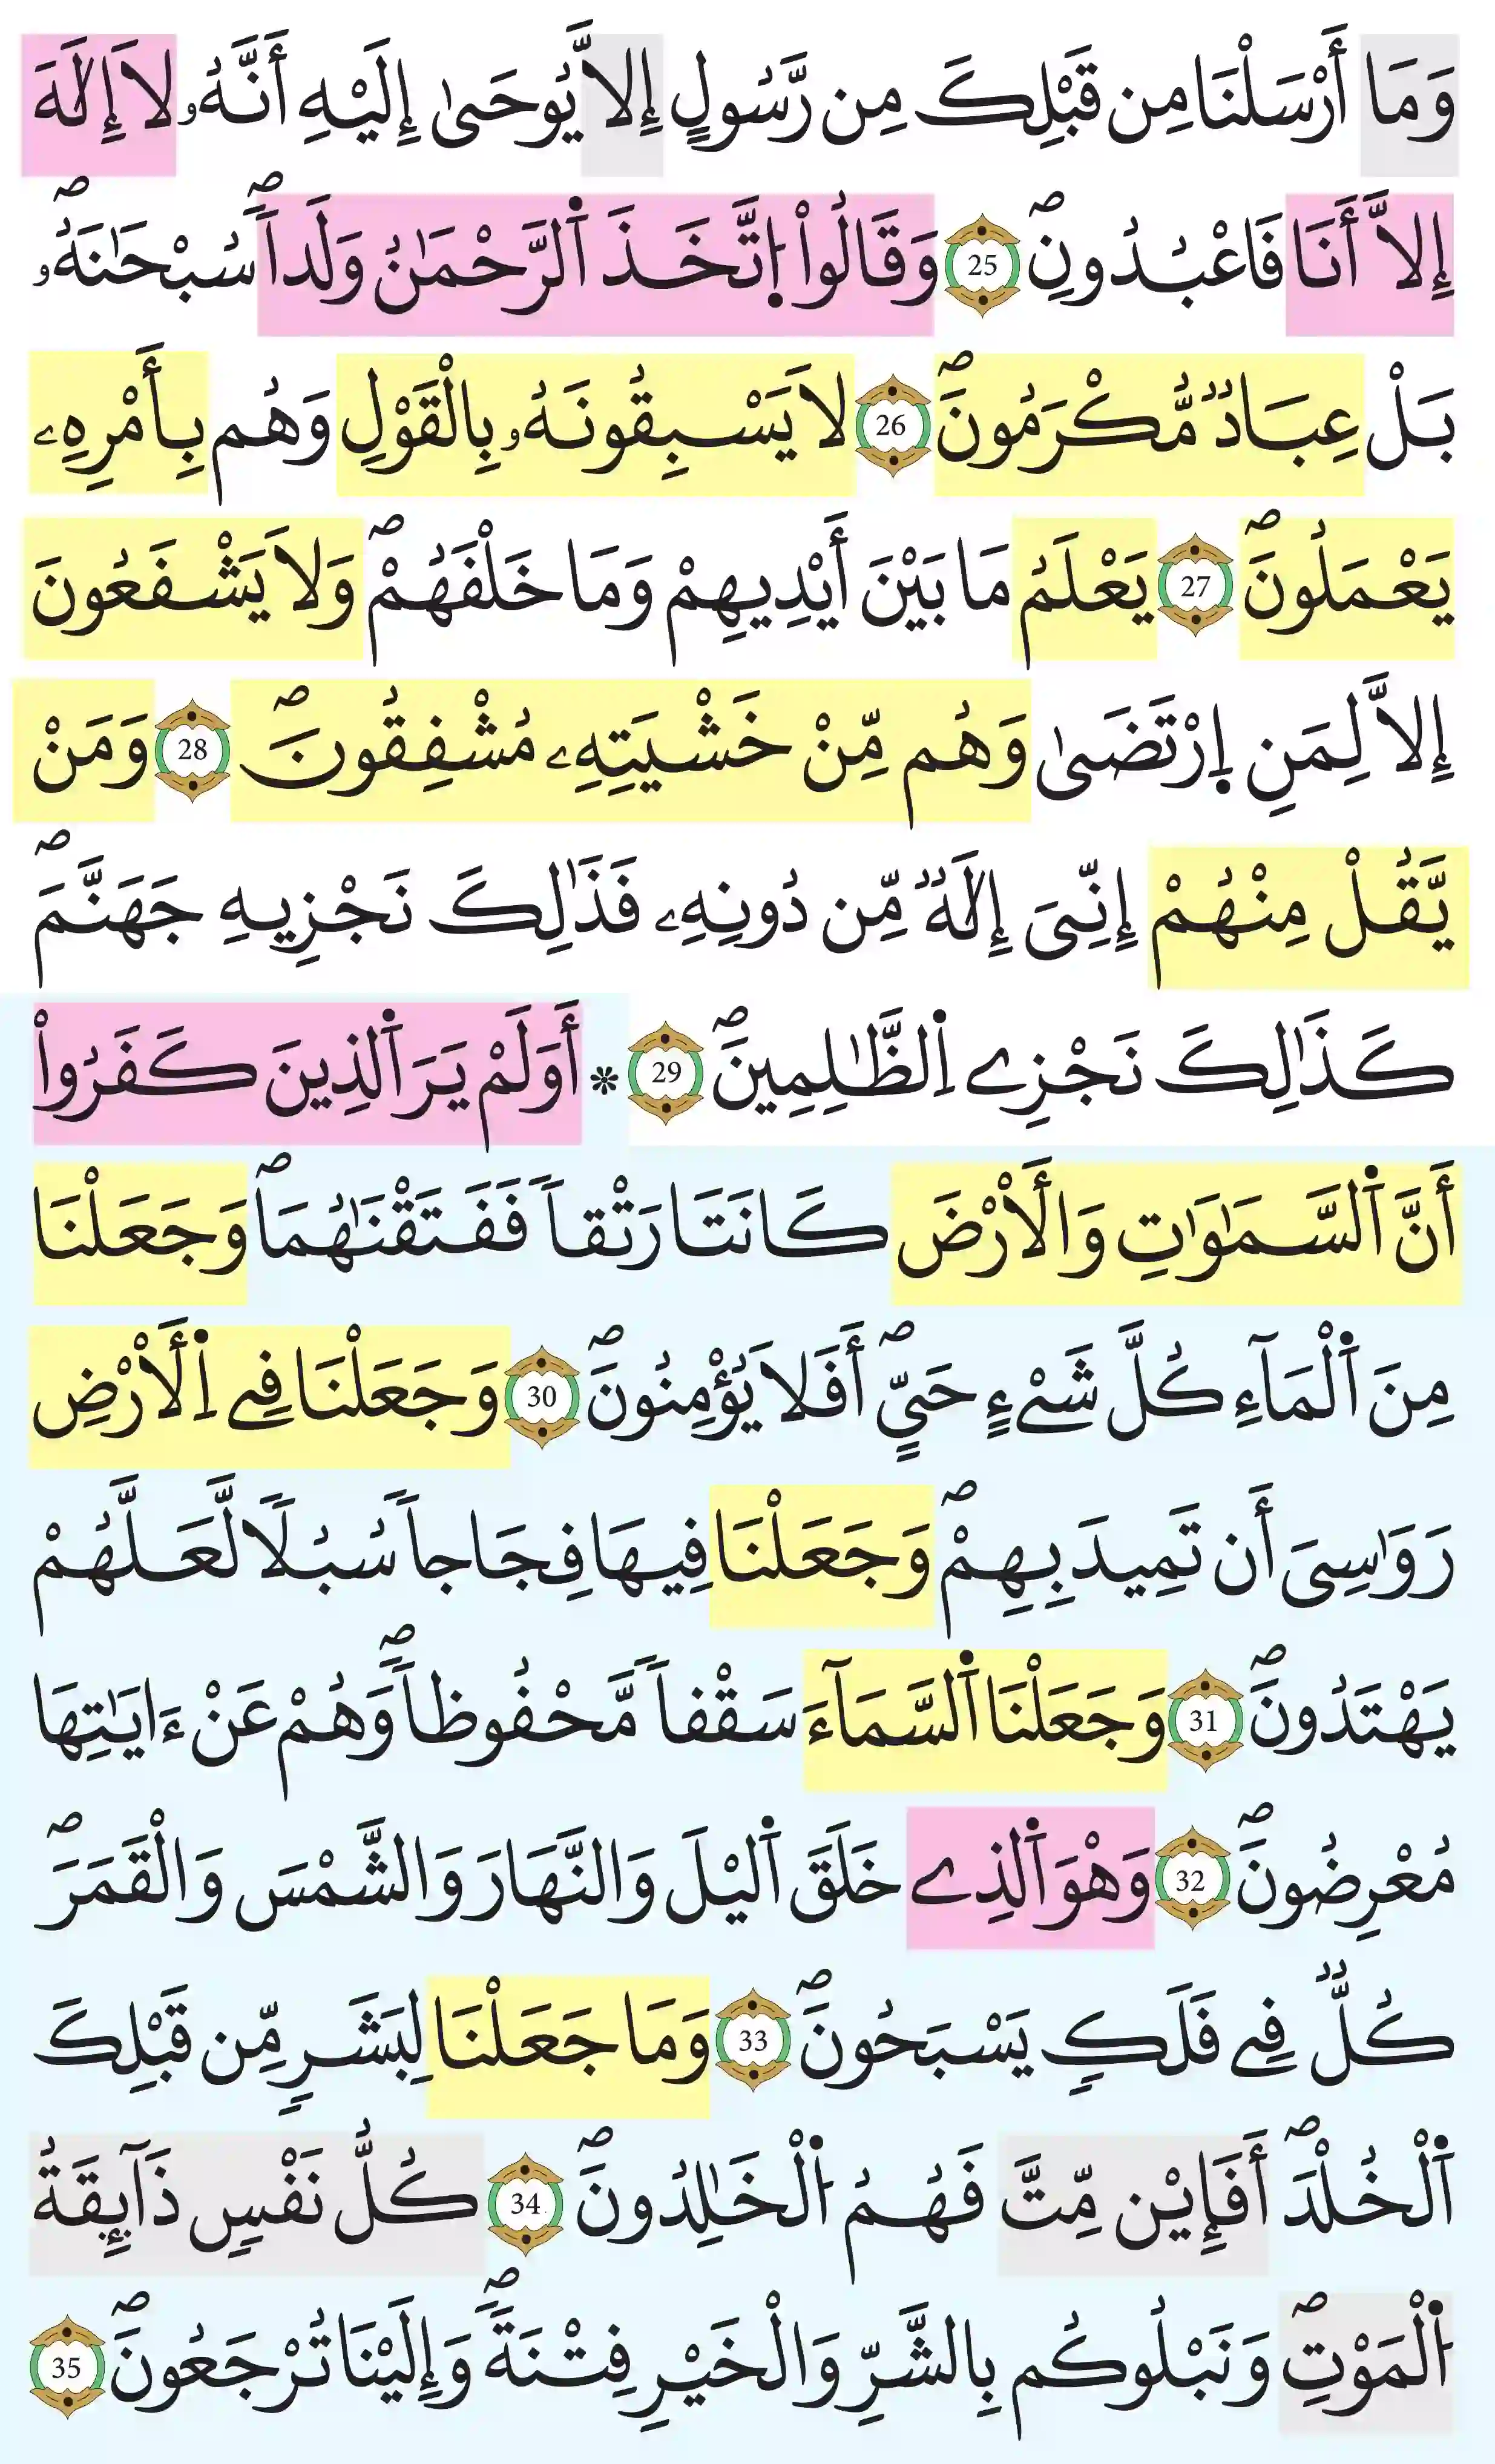 وَمَا أَرْسَلْنَا مِن قَبْلِكَ مِن رَّسُولٍ إِلاَّ يُوحَىٰ إِلَيْهِ أَنَّهُۥ لَا إِلَٰهَ
إِلاَّ أَنَا فَاعْبُدُونِۖ 25 وَقَالُواْ اُ۪تَّخَذَ اَ۬لرَّحْمَٰنُ وَلَداٗۖ سُبْحَٰنَهُۥۖ
بَلْ عِبَادٞ مُّكْرَمُونَۖ 26 لَا يَسْبِقُونَهُۥ بِالْقَوْلِ وَهُم بِأَمْرِهِۦ
يَعْمَلُونَۖ 27 يَعْلَمُ مَا بَيْنَ أَيْدِيهِمْ وَمَا خَلْفَهُمْۖ وَلَا يَشْفَعُونَ
إِلاَّ لِمَنِ اِ۪رْتَضَىٰ وَهُم مِّنْ خَشْيَتِهِۦ مُشْفِقُونَۖ 28 وَمَنْ
يَّقُلْ مِنْهُمْ إِنِّيَ إِلَٰهٞ مِّن دُونِهِۦ فَذَٰلِكَ نَجْزِيهِ جَهَنَّمَۖ
كَذَٰلِكَ نَجْزِے اِ۬لظَّٰلِمِينَۖ 29 * أَوَلَمْ يَرَ اَ۬لذِينَ كَفَرُواْ
أَنَّ اَ۬لسَّمَٰوَٰتِ وَالْأَرْضَ كَانَتَا رَتْقاٗ فَفَتَقْنَٰهُمَاۖ وَجَعَلْنَا
مِنَ اَ۬لْمَآءِ كُلَّ شَےْءٍ حَيٍّۖ أَفَلَا يُؤْمِنُونَۖ 30 وَجَعَلْنَا فِے اِ۬لْأَرْضِ
رَوَٰسِيَ أَن تَمِيدَ بِهِمْۖ وَجَعَلْنَا فِيهَا فِجَاجاٗ سُبُلاٗ لَّعَلَّهُمْ
يَهْتَدُونَۖ 31 وَجَعَلْنَا اَ۬لسَّمَآءَ سَقْفاٗ مَّحْفُوظاٗۖ وَهُمْ عَنْ ءَايَٰتِهَا
مُعْرِضُونَۖ 32 وَهْوَ اَ۬لذِے خَلَقَ اَ۬ليْلَ وَالنَّهَارَ وَالشَّمْسَ وَالْقَمَرَۖ
كُلّٞ فِے فَلَكٍ يَسْبَحُونَۖ 33 وَمَا جَعَلْنَا لِبَشَرٍ مِّن قَبْلِكَ
اَ۬لْخُلْدَۖ أَفَإِيْن مِّتَّ فَهُمُ اُ۬لْخَٰلِدُونَۖ 34 كُلُّ نَفْسٍ ذَآئِقَةُ
اُ۬لْمَوْتِۖ وَنَبْلُوكُم بِالشَّرِّ وَالْخَيْرِ فِتْنَةٗۖ وَإِلَيْنَا تُرْجَعُونَۖ 35